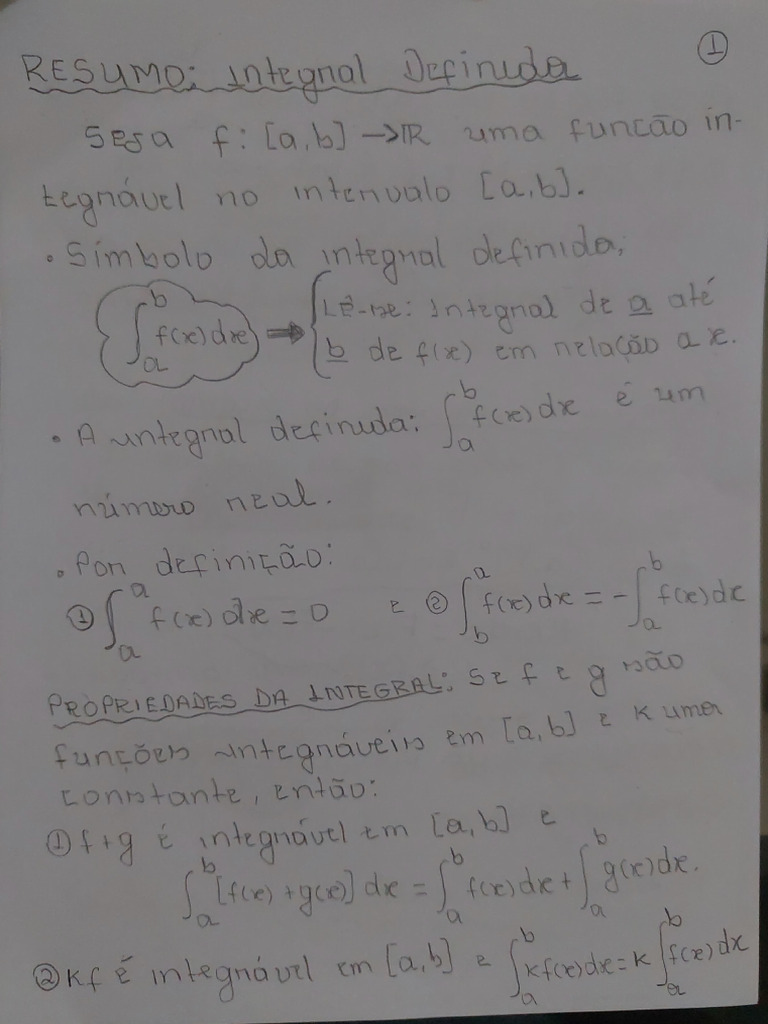 ①
RESUMO: Integral Definida
Seja f: [a,b] → ℝ uma função in-
tegrável no intervalo [a,b].
• Símbolo da integral definida;
∫_a^b f(x)dx ⇒ { Lê-se: Integral de a até
b de f(x) em relação a x.
• A integral definida: ∫_a^b f(x)dx é um
número real.
• Por definição:
① ∫_a^a f(x)dx = 0 e ② ∫_b^a f(x)dx = -∫_a^b f(x)dx
PROPRIEDADES DA INTEGRAL: Se f e g são
funções integráveis em [a,b] e K uma
constante, então:
① f+g é integrável em [a,b] e
∫_a^b [f(x)+g(x)]dx = ∫_a^b f(x)dx + ∫_a^b g(x)dx.
② Kf é integrável em [a,b] e ∫_a^b Kf(x)dx = K∫_a^b f(x)dx